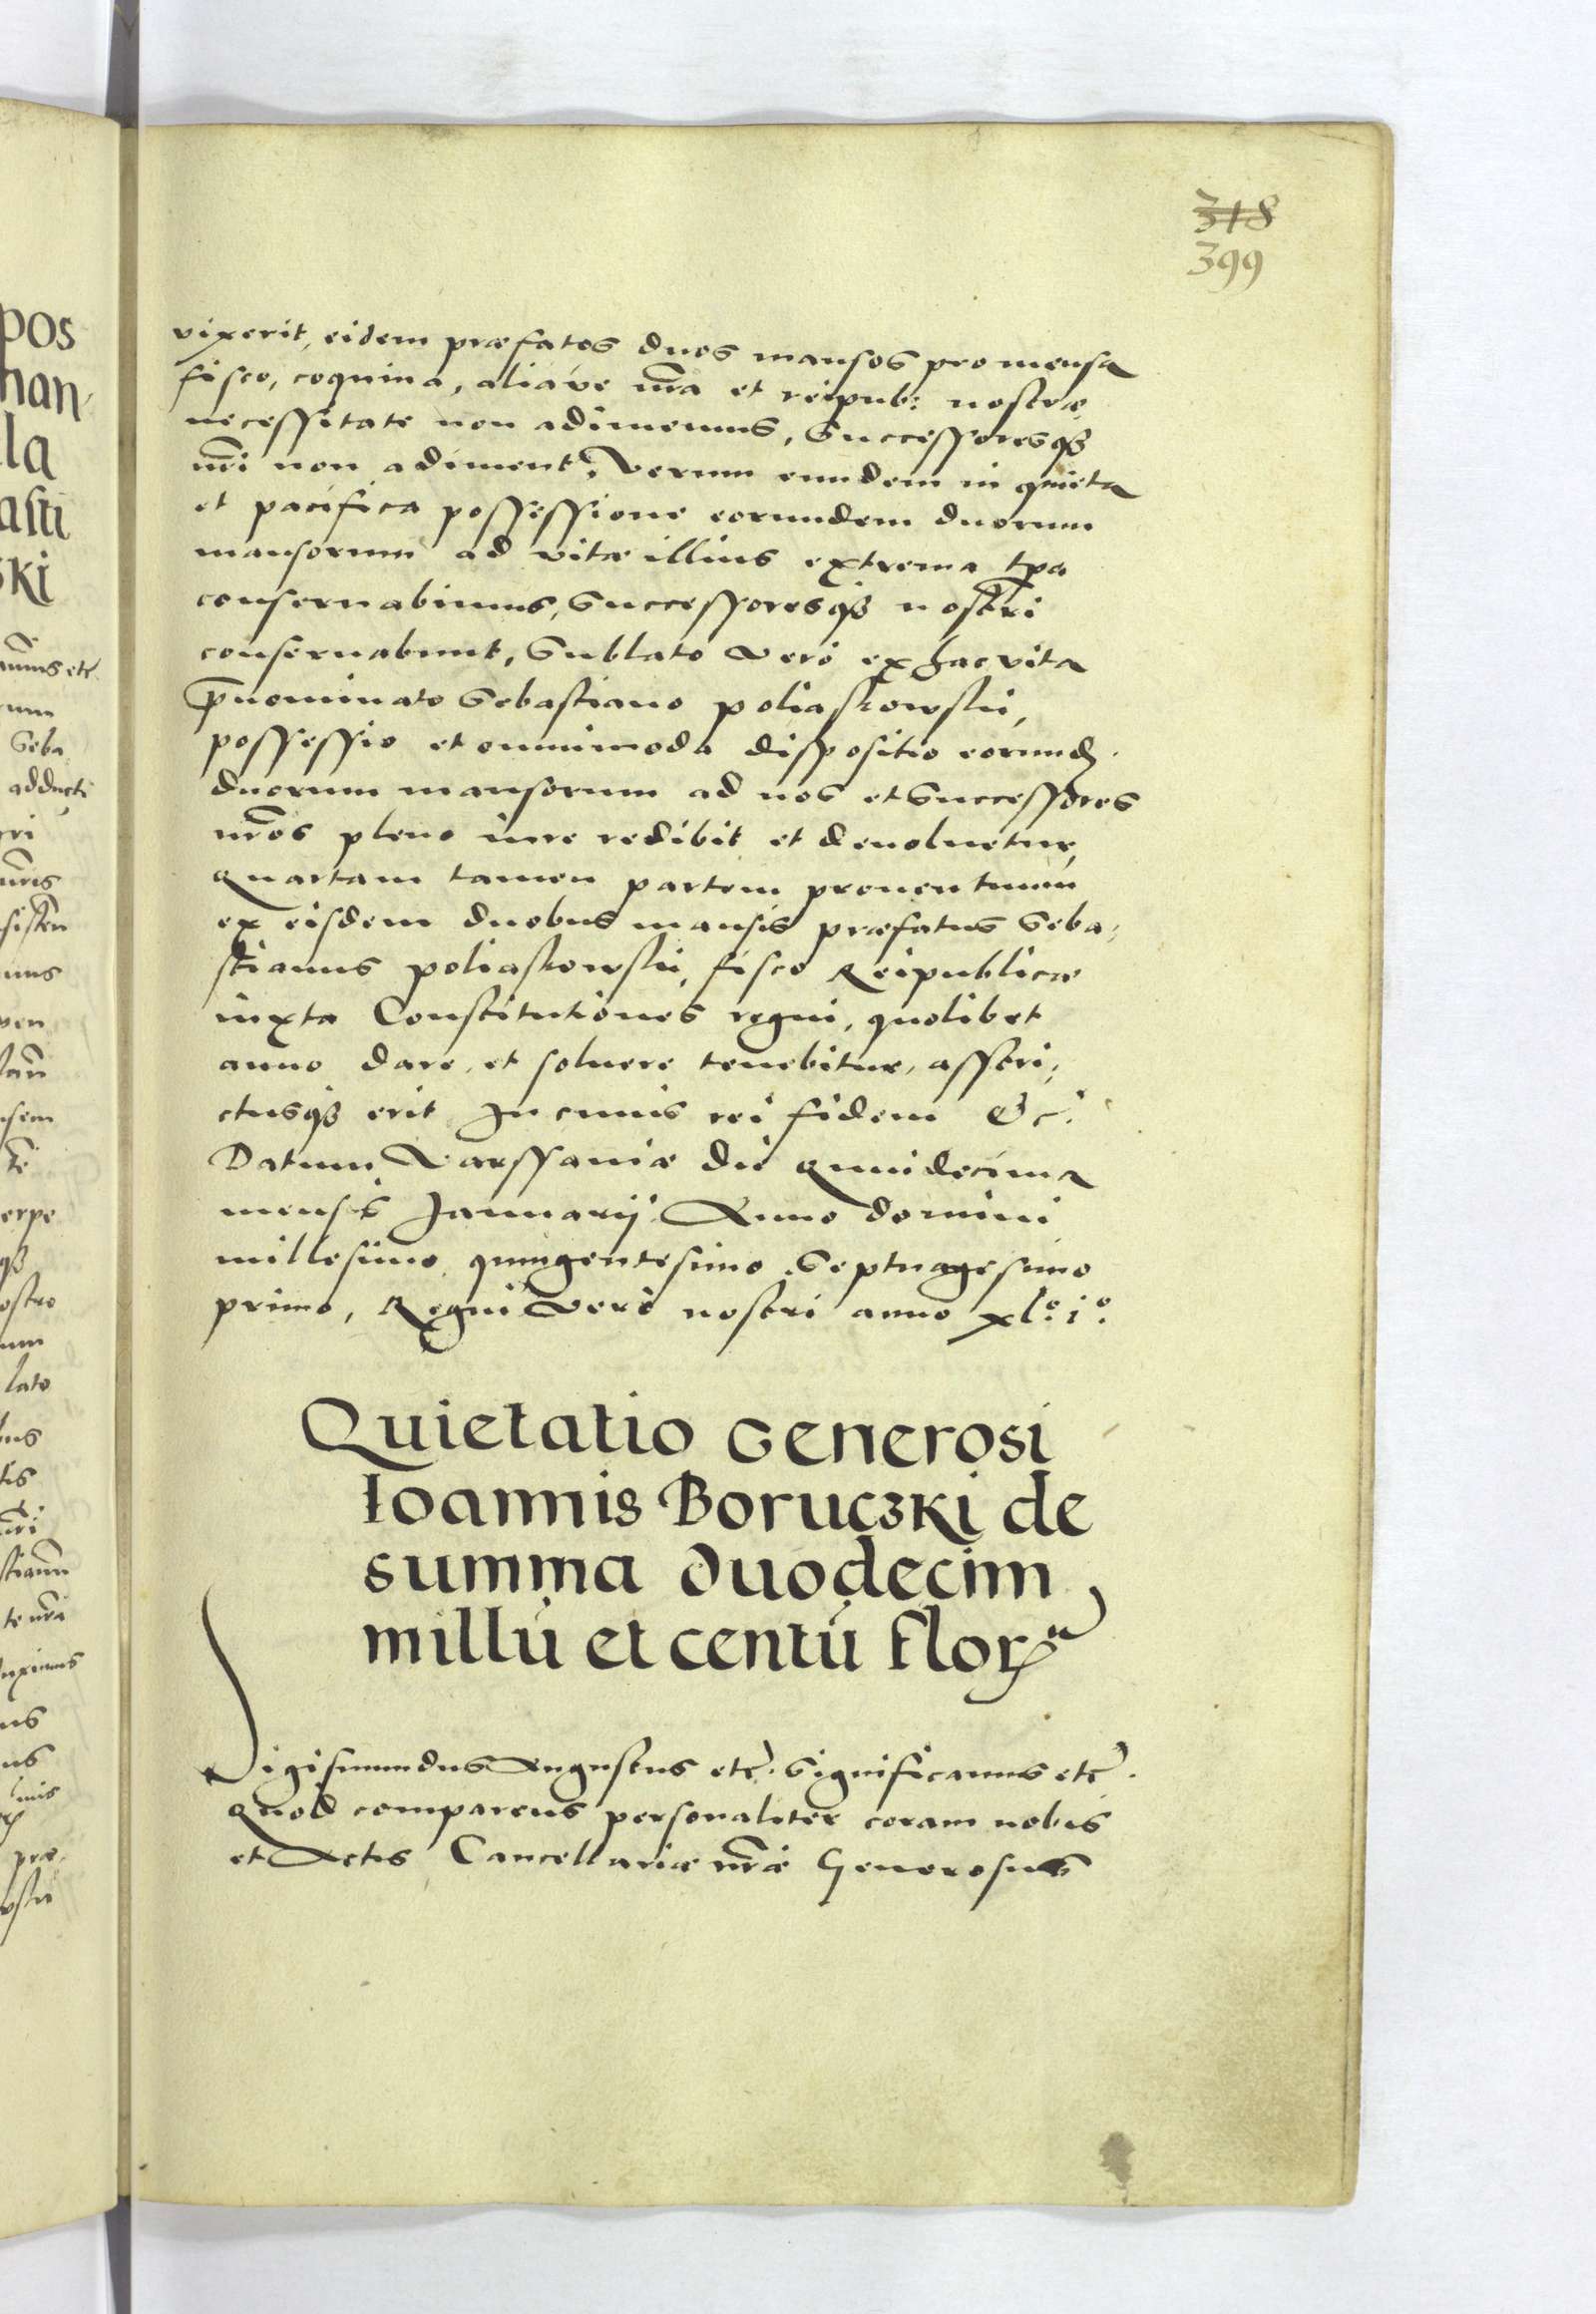 318
399
vixerit, eidem præfatos duos mansos pro mensa
fisco, coquina, aliáve nr̃a et reipub: nostræ
necessitate non adimemus, Successoresqꝫ
nr̃i non adiment, Verum eundem in quieta
et pacifica possessione eorundem duorum
mansorum ad vitæ illius extrema tp̃a
conseruabimus, Successoresqꝫ nostri
conseruabunt, Sublato vero ex hac vita
p̃nominato Sebastiano poliaskowski,
possessio et omnimoda dispositio eorund.
duorum mansorum ad nos et Successores
nr̃os pleno iure redibit et deuoluetur,
Quartam tamen partem prouentuum
ex eisdem duobus mansis præfatus Seba,
stianus poliaskowski, fisco Reipublicæ
iuxta Constitutiones regni, quolibet
anno dare, et soluere tenebitur, asstri,
ctusqꝫ erit In cuius rei fidem &c.
Datum Varssauiæ die quindecima
mensis Januarij Anno domini
millesimo quingentesimo Septuagesimo
primo, Regni vero nostri anno xl.º i.º
Quietatio Generosi
Ioannis Boruczki de
summa duodecim
milliū et centū florꝝ
Sigismundus Augustus etc̃. Significamus etc̃.
Quod comparens personaliter coram nobis
et Actis Cancellariæ nr̃æ Generosus